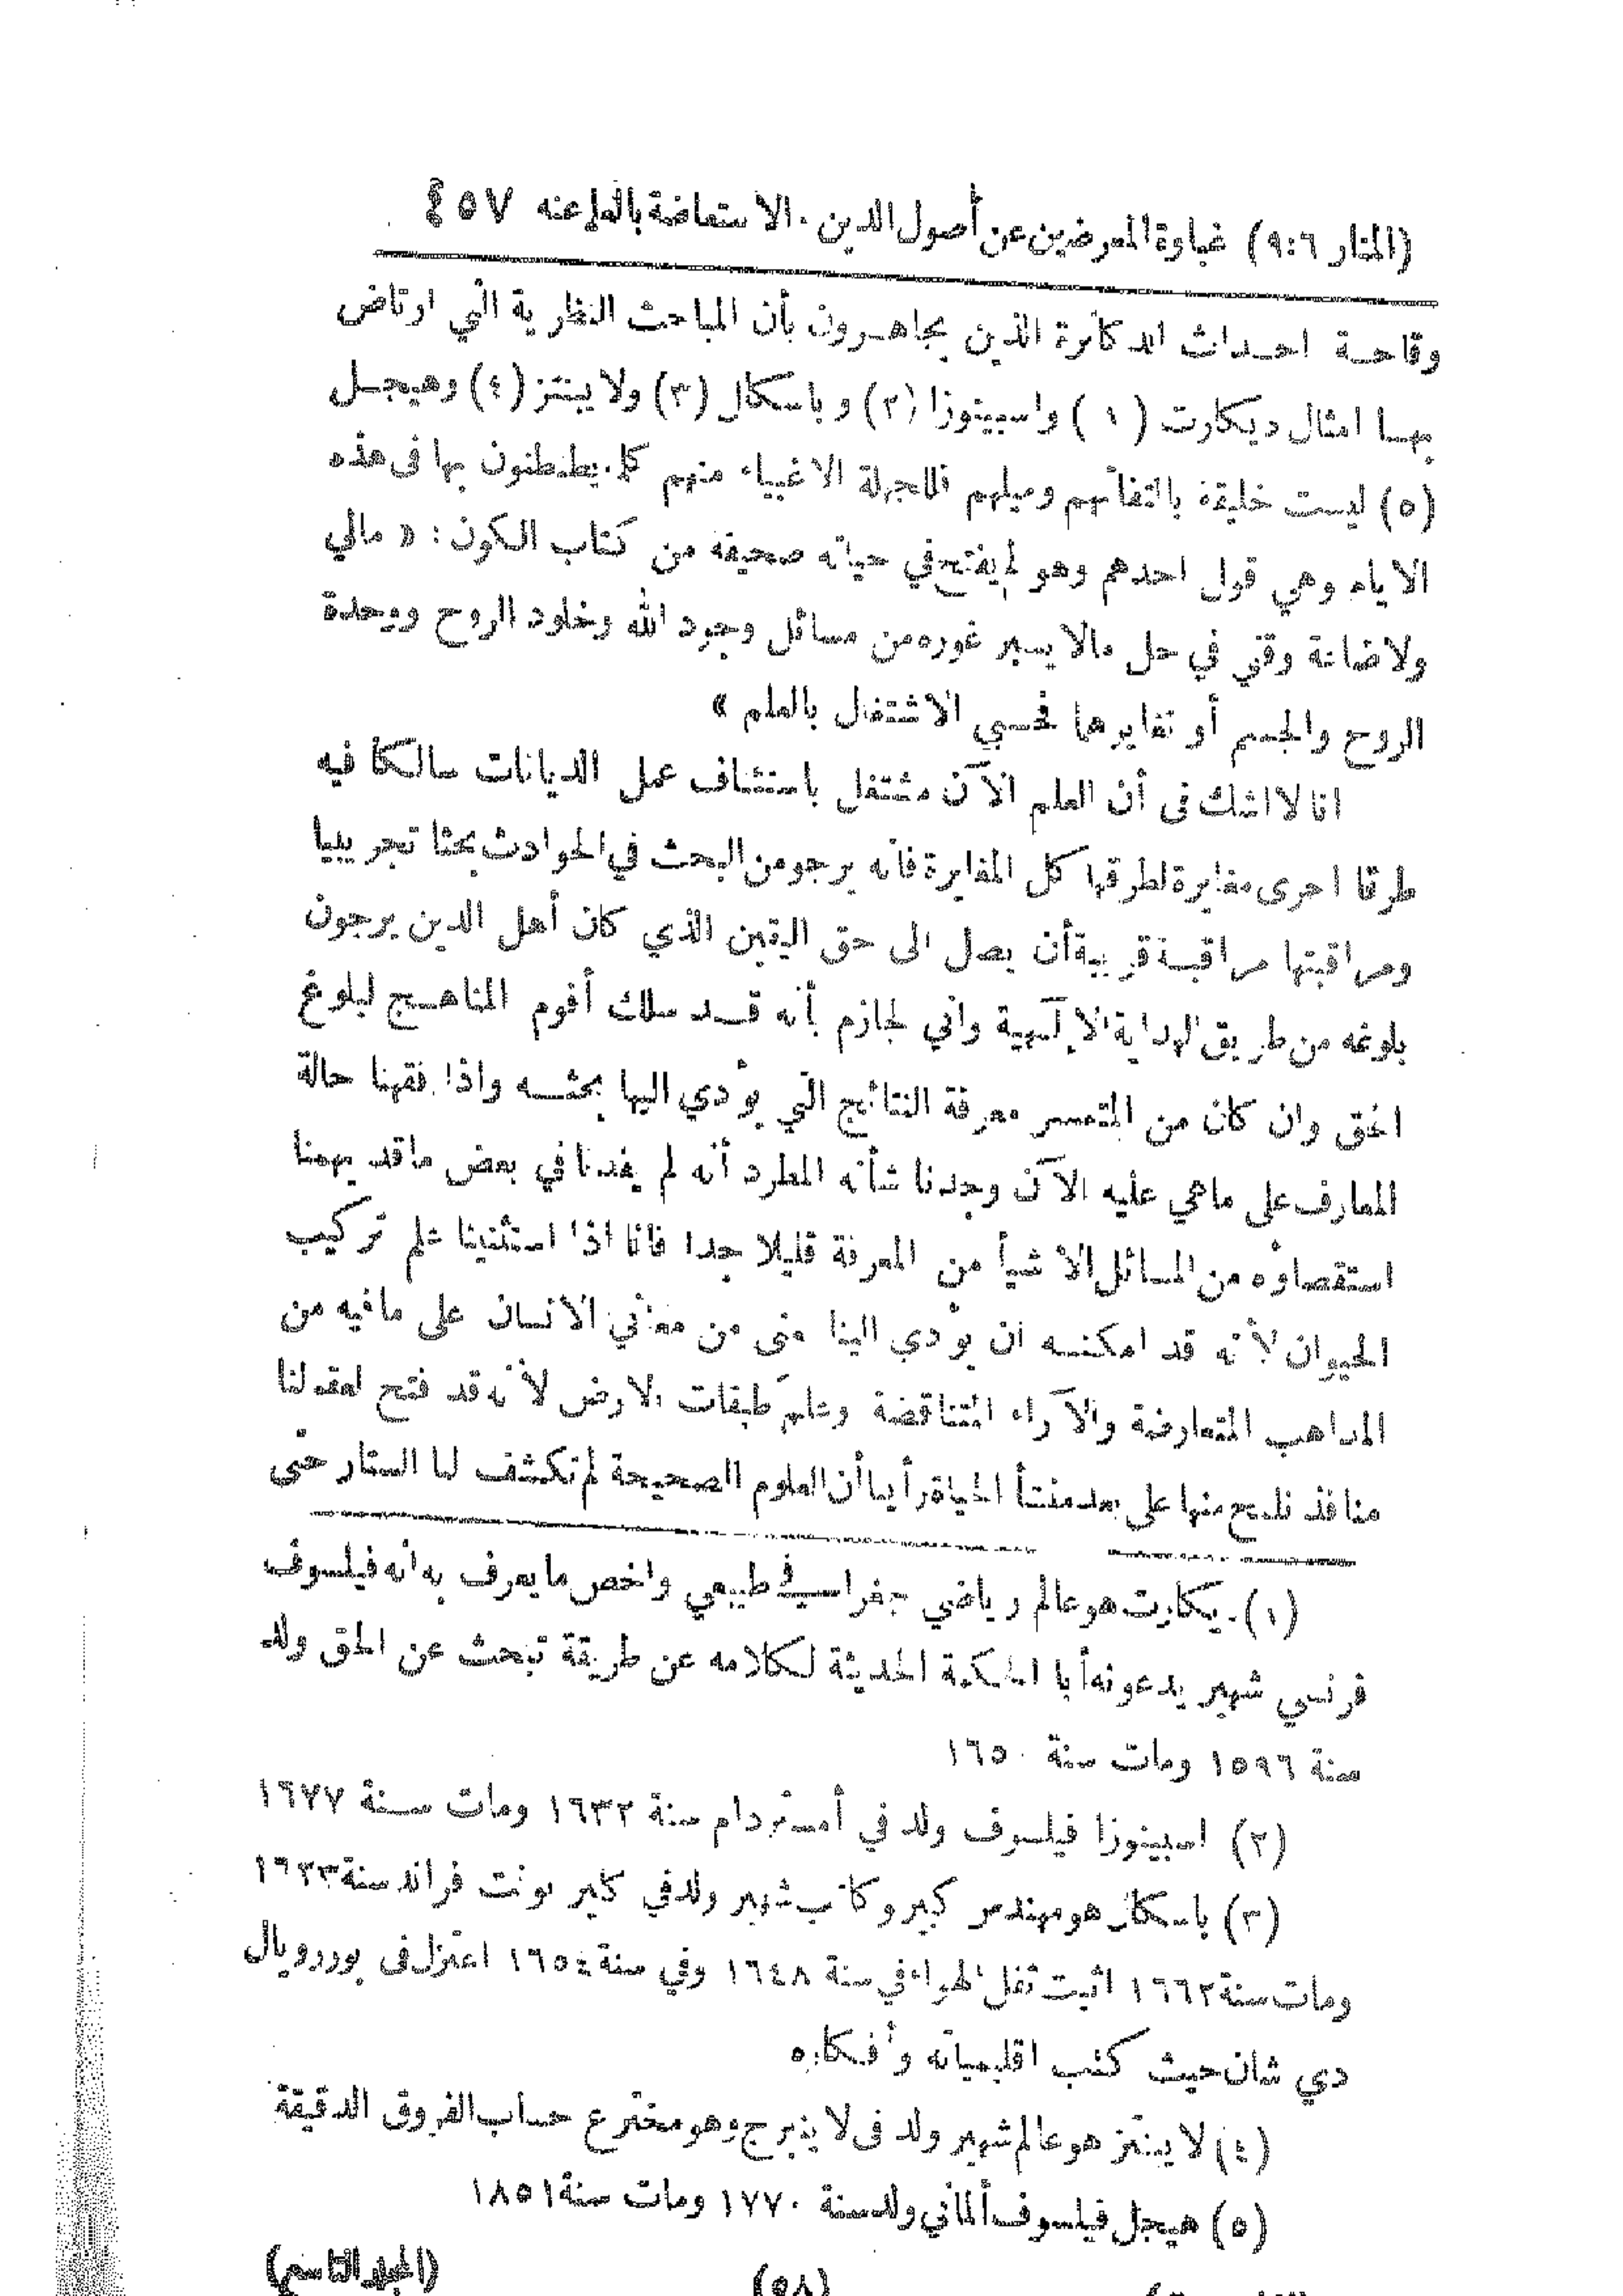 (المنار ٩:٦) غباوة المعرضين عن أصول الدين . الاستعاضة بالعلم عنه ٤٥٧
وقاحة احداث الدكاترة الذين يجاهرون بأن المباحث النظرية التي ارتاض
بها امثال ديكارت (١) واسبينوزا (٢) وباسكال (٣) ولايبنتز (٤) وهيجل
(٥) ليست خليقة بالتفاتهم وميلهم فللجهلة الاغبياء منهم كلمة يطنطنون بها فى هذه
الايام وهي قول احدهم وهو لم يفتح في حياته صحيفة من كتاب الكون : « مالي
ولاضاعة وقتي في حل مالا يسبر غوره من مسائل وجود الله وخلود الروح ووحدة
الروح والجسم أو تغايرهما فحسبي الاشتغال بالعلم »
انا لا اشك فى أن العلم الآن مشتغل باستئناف عمل الديانات سالكا فيه
طرقا اخرى مغايرة لطرقها كل المغايرة فانه يرجو من البحث في الحوادث بحثا تجريبيا
ومراقبتها مراقبة قريبة أن يصل الى حق اليقين الذي كان أهل الدين يرجون
بلوغه من طريق الهداية الإلهية واني لجازم بأنه قد سلك أقوم المناهج لبلوغ
الحق وان كان من المتعسر معرفة النتائج التي يؤدي اليها بحثه واذا فقهنا حالة
المعارف على ماهي عليه الآن وجدنا شأنه المطرد أنه لم يفدنا في بعض ماقد يهمنا
استقصاؤه من المسائل الا شيأ من المعرفة قليلا جدا فانا اذا استثنينا علم تركيب
الحيوان لأنه قد امكنه ان يؤدي الينا معنى من معاني الانسان على مافيه من
المذاهب المتعارضة والآراء المتناقضة وعلم طبقات الارض لأنه قد فتح لعقولنا
منافذ نلمح منها على بعد منشأ الحياة رأينا أن العلوم الصحيحة لم تكشف لنا الستار حتى
(١) ديكارت هو عالم رياضي جغرافي طبيعي واخص ما يعرف به انه فيلسوف
فرنسي شهير يدعونه أبا الحكمة الحديثة لكلامه عن طريقة تبحث عن الحق ولد
سنة ١٥٩٦ ومات سنة ١٦٥٠
(٢) اسبينوزا فيلسوف ولد في أمستردام سنة ١٦٣٢ ومات سنة ١٦٧٧
(٣) باسكال هو مهندس كبير وكاتب شهير ولد في كلير مونت فراند سنة ١٦٢٣
ومات سنة ١٦٦٢ اثبت ثقل الهواء في سنة ١٦٤٨ وفي سنة ١٦٥٤ اعتزل فى بوررويال
دي شان حيث كتب اقليمياته وأفكاره
(٤) لايبنتز هو عالم شهير ولد فى لايبزج وهو مخترع حساب الفروق الدقيقة
(٥) هيجل فيلسوف ألماني ولد سنة ١٧٧٠ ومات سنة ١٨٥١
(٥٨) (المجلد التاسع)